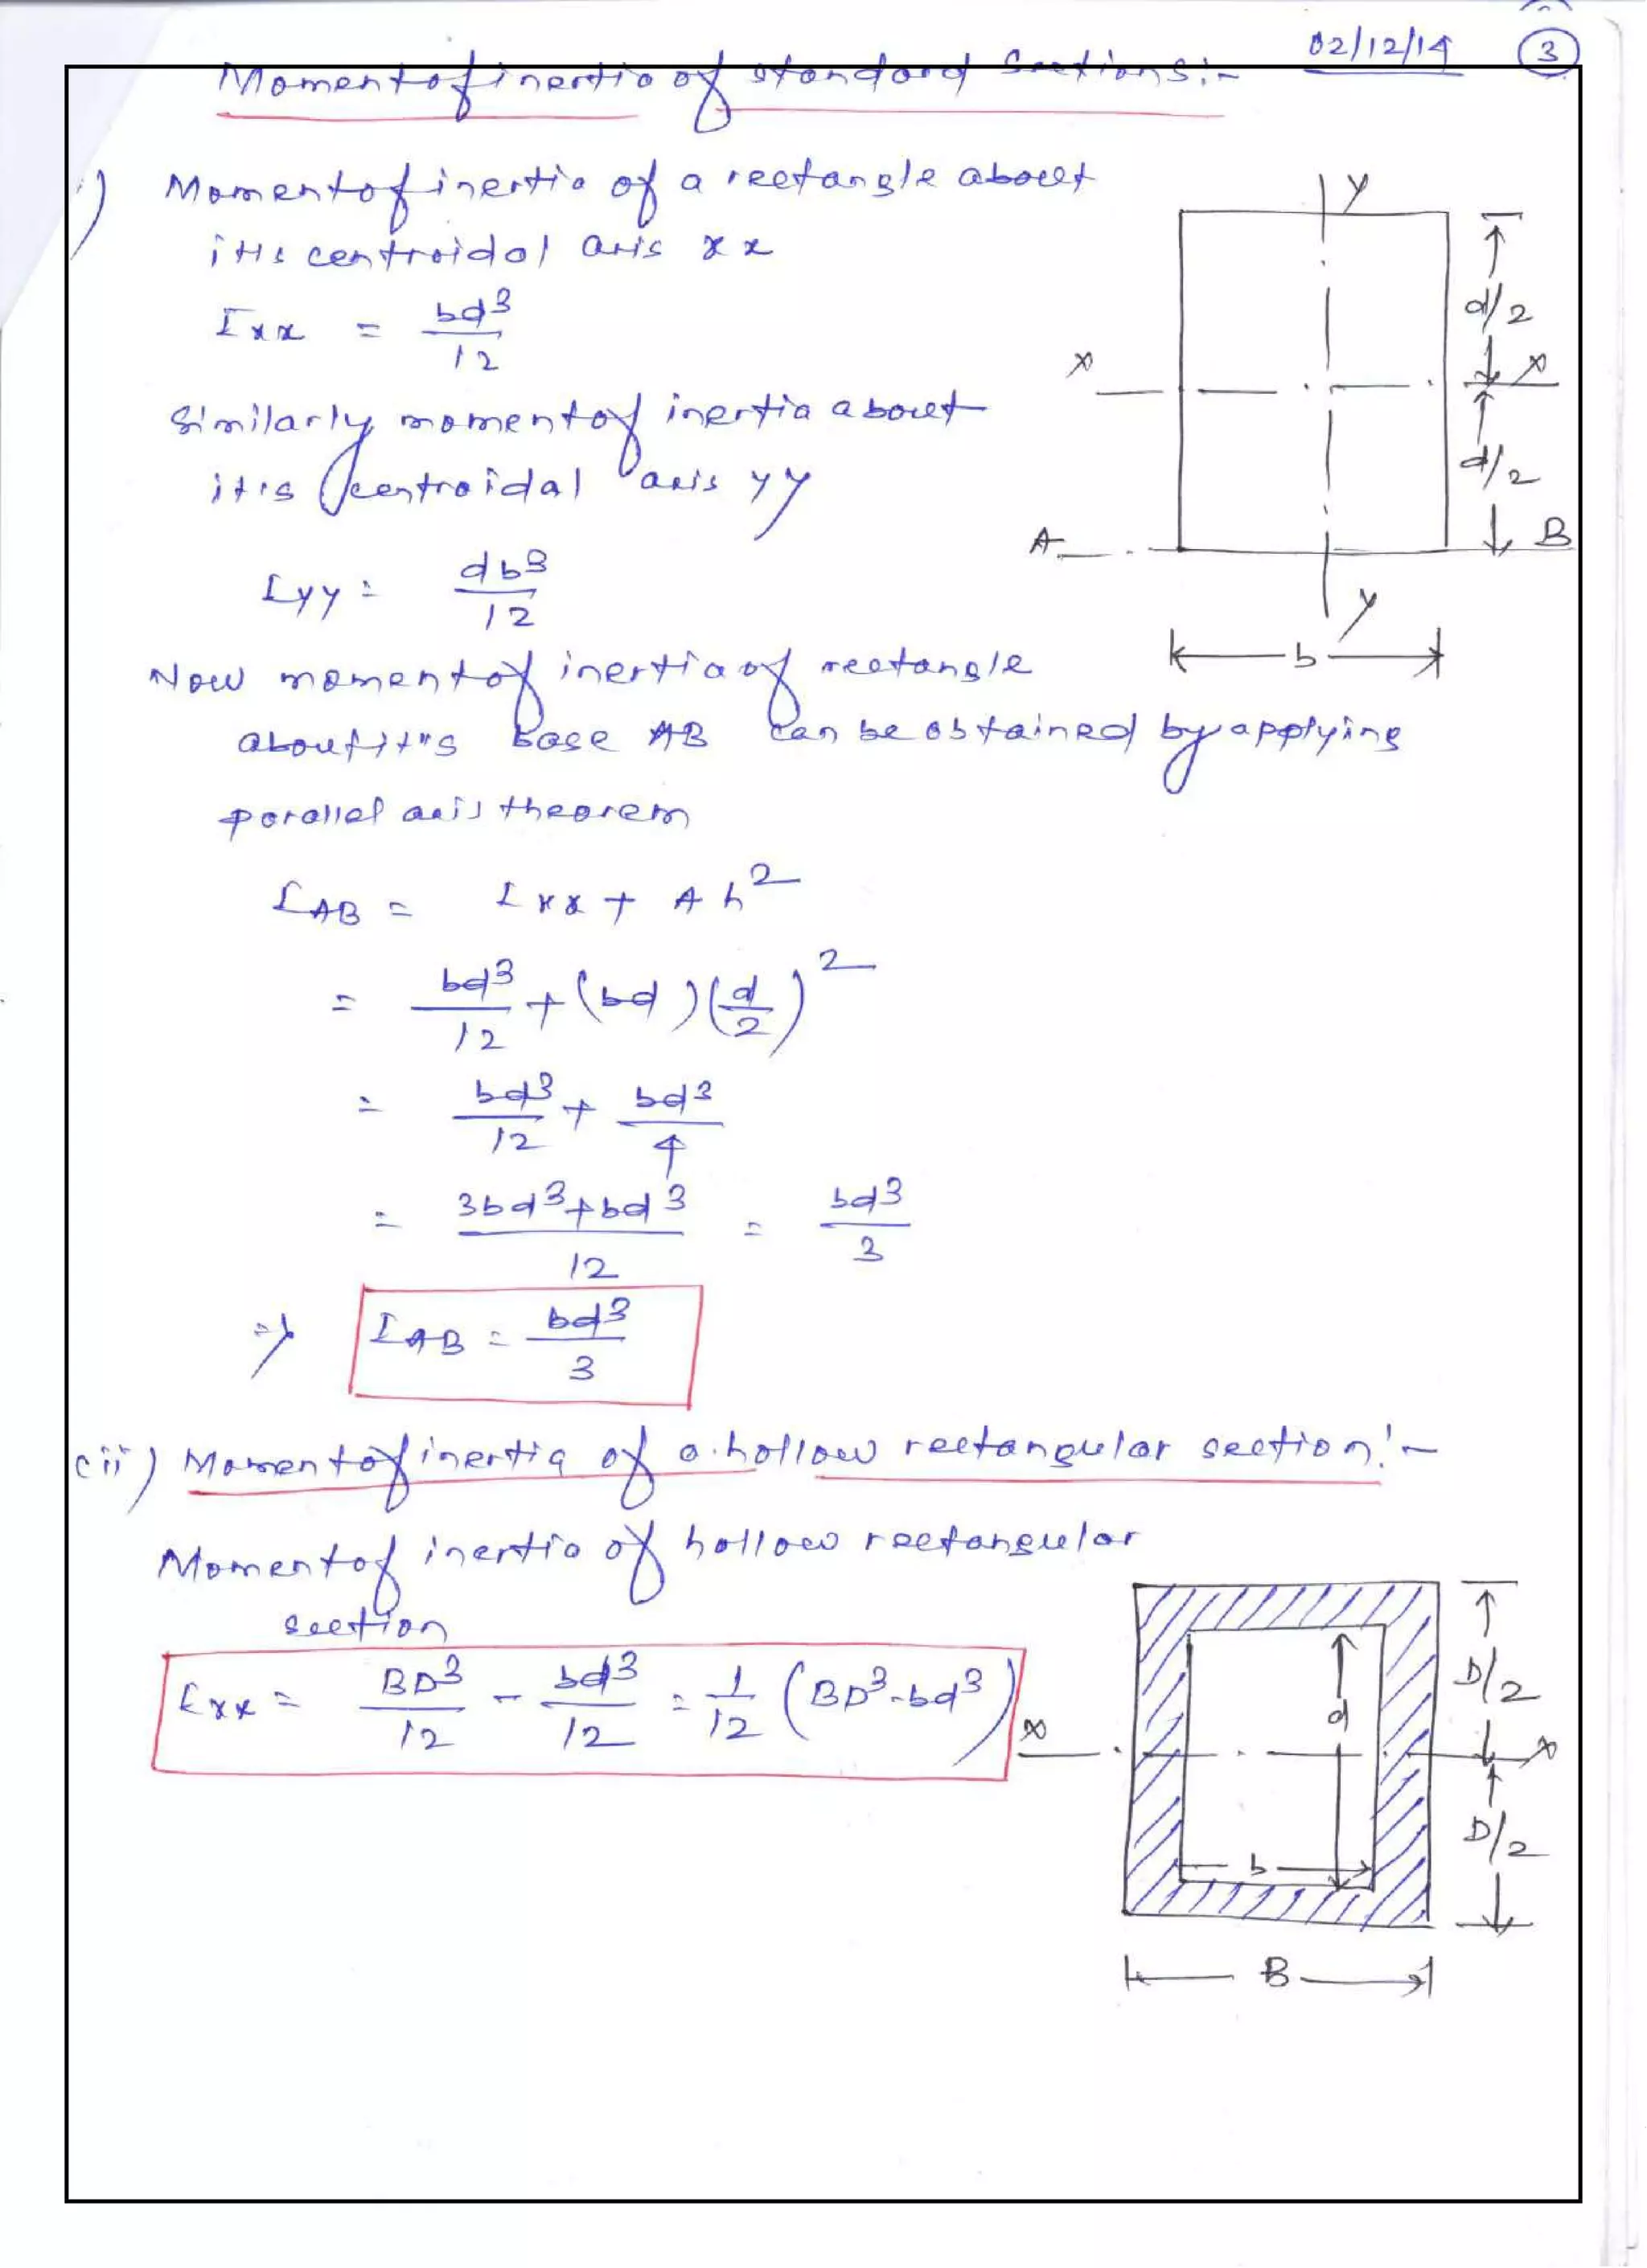 02/12/14 3
Moment of inertia of standard Sections:-
i) Moment of inertia of a rectangle about
it's centroidal axis xx
Ixx = bd³/12
Similarly moment of inertia about
it's centroidal axis yy
Iyy = db³/12
Now moment of inertia of rectangle
about it's base AB can be obtained by applying
parallel axis theorem
IAB = Ixx + Ah²
= bd³/12 + (bd)(d/2)²
= bd³/12 + bd³/4
= 3bd³+bd³/12 = bd³/3
⇒ IAB = bd³/3
y
d/2
x x
d/2
A B
y
b
(ii) Moment of inertia of a hollow rectangular section:-
Moment of inertia of hollow rectangular
section
Ixx = BD³/12 - bd³/12 = 1/12 (BD³-bd³)
D/2
d
x x
D/2
b
B